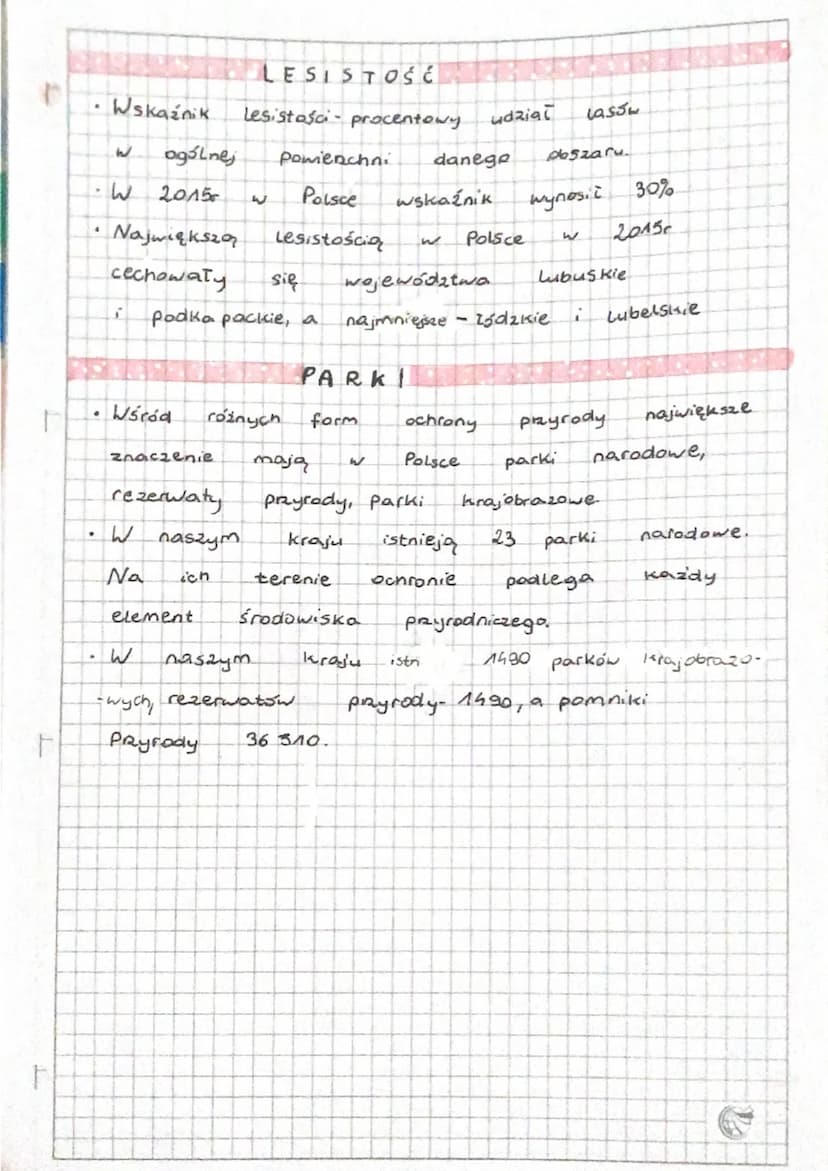 LESISTOŚĆ
• Wskaźnik lesistości - procentowy udział lasów
w ogólnej powierzchni danego obszaru.
• W 2015r w Polsce wskaźnik wynosił 30%
• Największą lesistością w Polsce w 2015r
cechowały się województwa lubuskie
i podkapackie, a najmniejsze - łódzkie i lubelskie
PARKI
• Wśród różnych form ochrony przyrody największe
znaczenie mają w Polsce parki narodowe,
rezerwaty przyrody, parki krajobrazowe.
• W naszym kraju istnieją 23 parki narodowe.
Na ich terenie ochronie podlega każdy
element środowiska przyrodniczego.
• W naszym kraju istn 1490 parków krajobrazo-
-wych, rezerwatów przyrody - 1490, a pomniki
Przyrody 36 310.